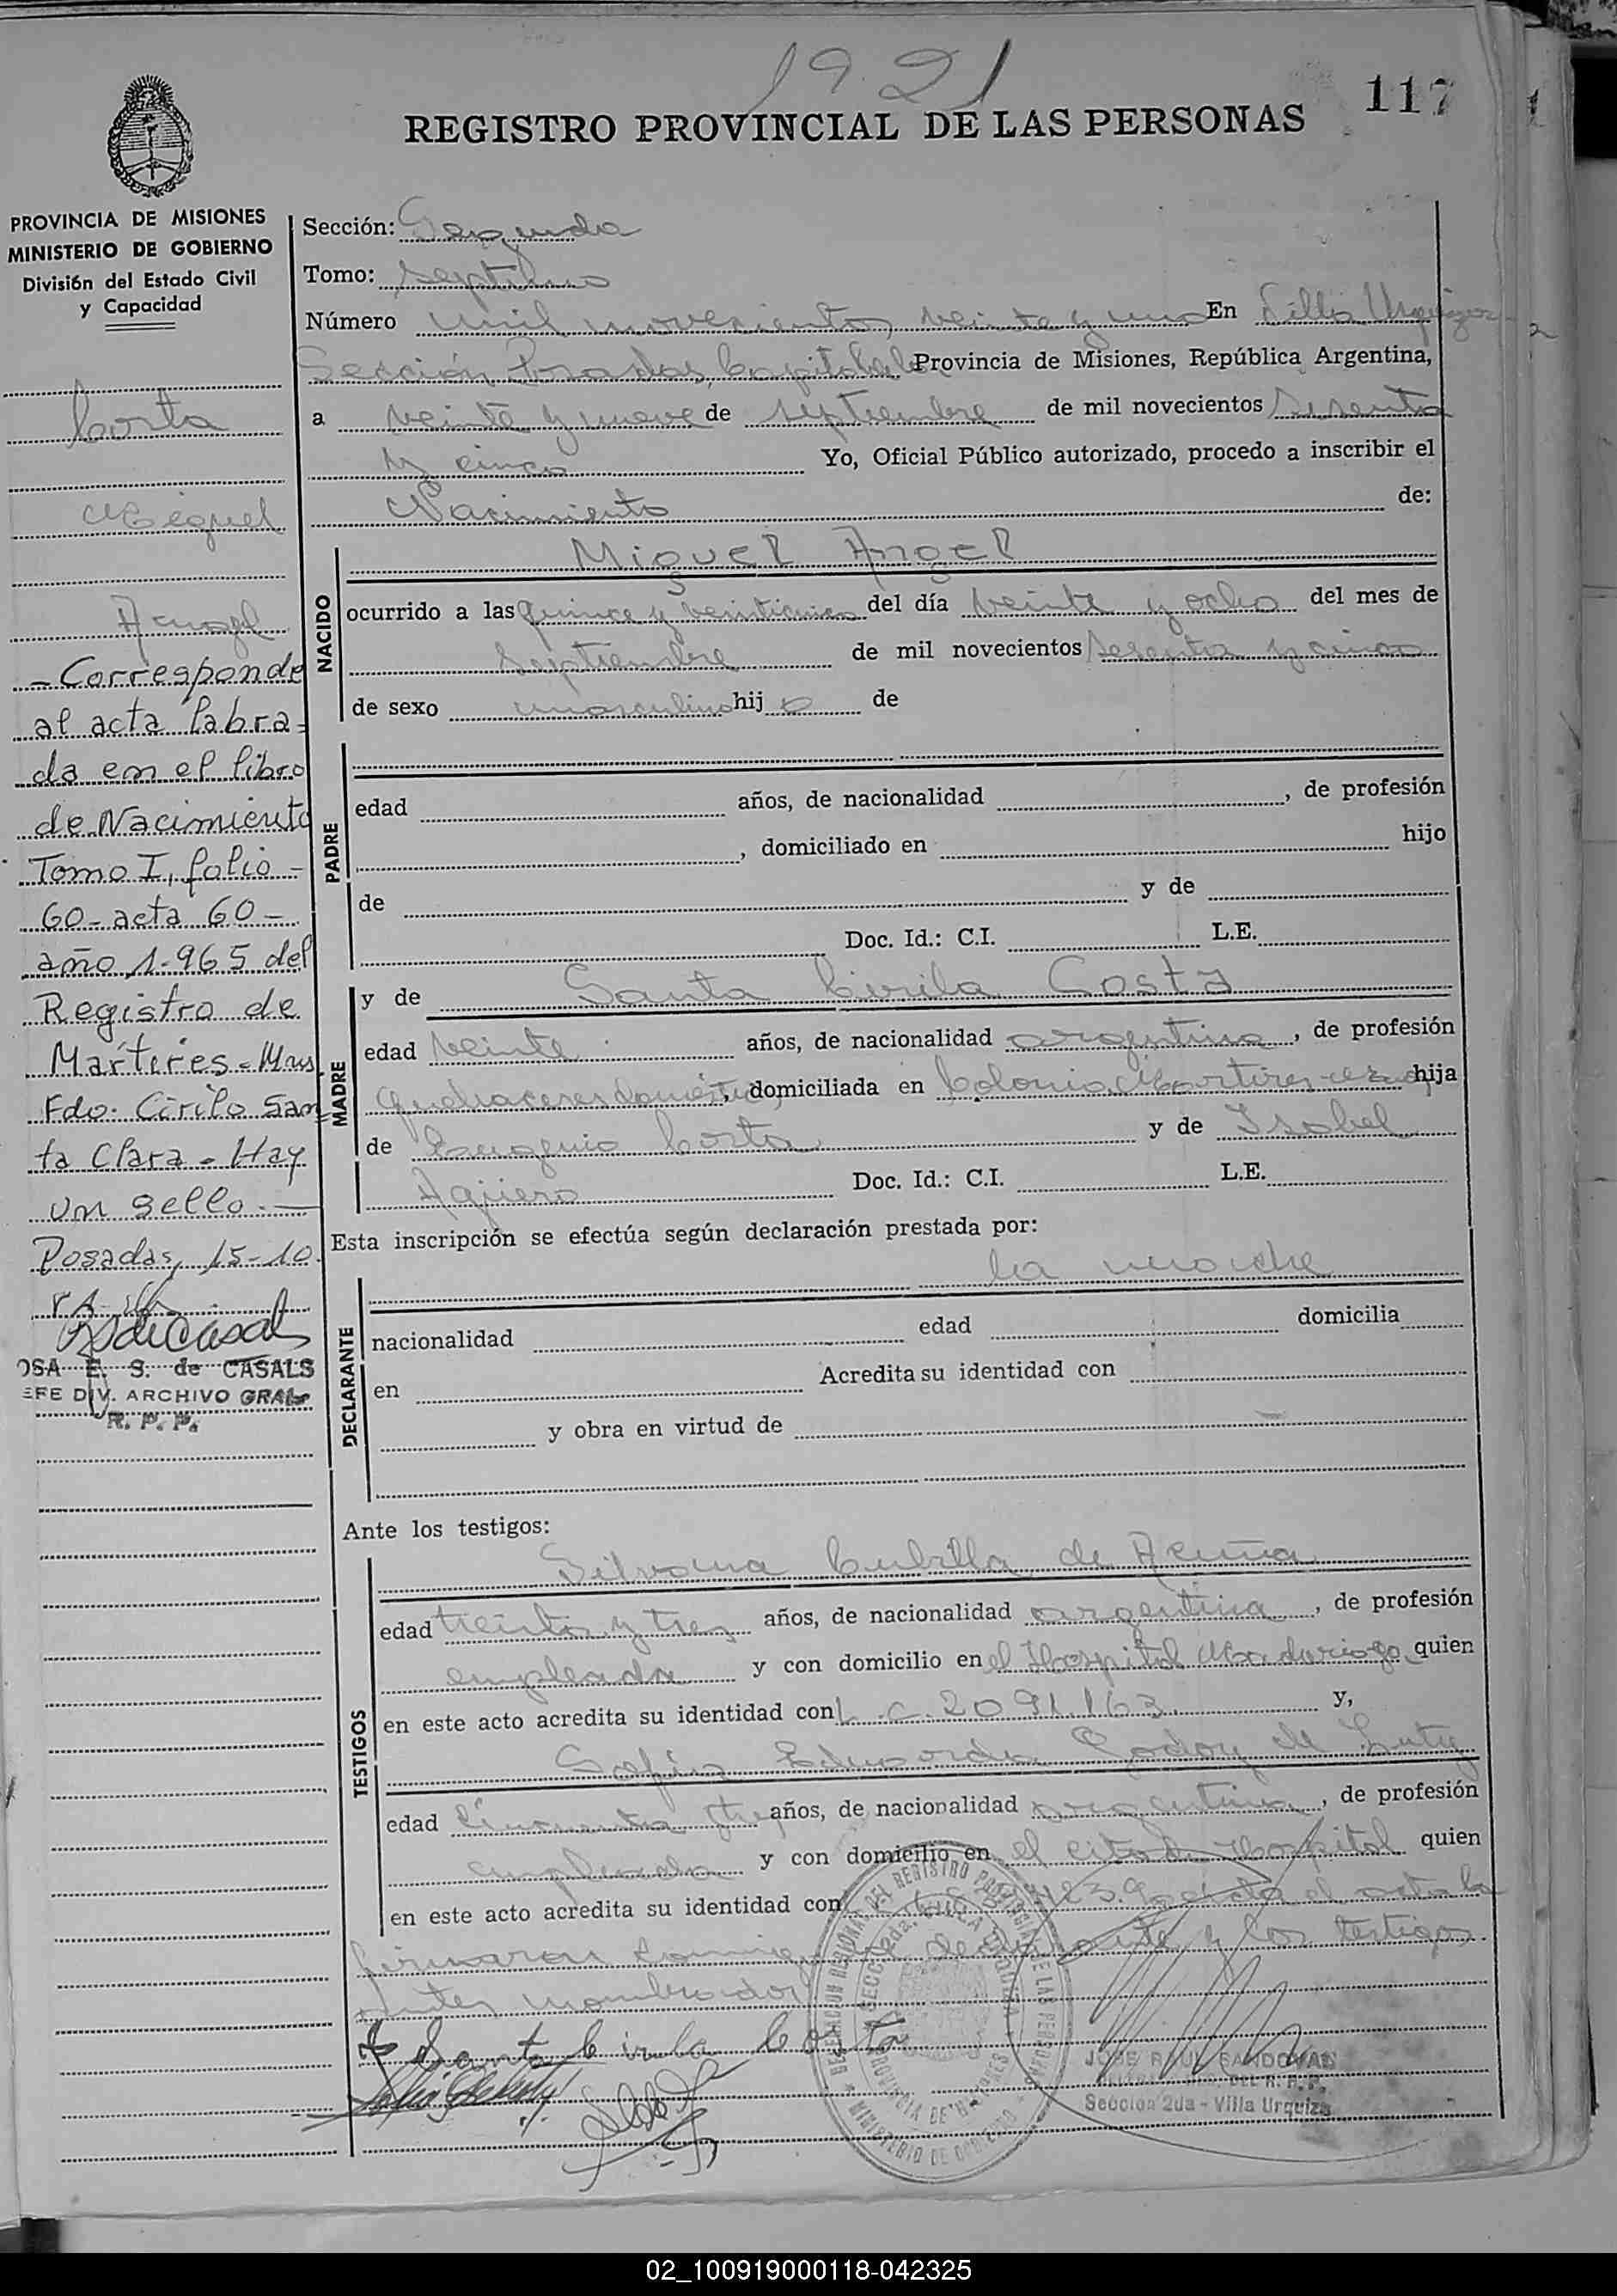 1921
117
REGISTRO PROVINCIAL DE LAS PERSONAS
PROVINCIA DE MISIONES
MINISTERIO DE GOBIERNO
División del Estado Civil
y Capacidad
Costa
Miguel
Angel
- Corresponde
al acta labra-
da en el libro
de Nacimiento
Tomo I, folio -
60 - acta 60 -
año 1.965 del
Registro de
Mártires - Mns
Fdo: Cirilo San
ta Clara - Hay
un sello. —
Posadas, 15-10
OSA E. S. de CASALS
EFE DIV. ARCHIVO GRAL
R. P. P.
Sección: Segunda
Tomo: septimo
Número mil novecientos veinte y uno En Villa Urquiza
Sección Posadas, Capital de la Provincia de Misiones, República Argentina,
a veinte y nueve de septiembre de mil novecientos sesenta
y cinco Yo, Oficial Público autorizado, procedo a inscribir el
Nacimiento de:
NACIDO
Miguel Angel
ocurrido a las quince y veinticinco del día veinte y ocho del mes de
septiembre de mil novecientos sesenta y cinco
de sexo masculino hijo de
PADRE
edad años, de nacionalidad , de profesión
, domiciliado en hijo
de y de
Doc. Id.: C.I. L.E.
MADRE
y de Santa Cirila Costa
edad veinte años, de nacionalidad argentina, de profesión
quehaceres domésticos, domiciliada en Colonia Mártires hija
de Costa y de Isabel
Agüero Doc. Id.: C.I. L.E.
Esta inscripción se efectúa según declaración prestada por:
DECLARANTE
la madre
nacionalidad edad domicilia
en Acredita su identidad con
y obra en virtud de
Ante los testigos:
TESTIGOS
Silvana Cubilla de Acuña
edad treinta y tres años, de nacionalidad argentina, de profesión
empleada y con domicilio en el Hospital Madariaga quien
en este acto acredita su identidad con L.C. 2091.163 y,
Sofía Eduarda Godoy de
edad cincuenta años, de nacionalidad argentina, de profesión
empleada y con domicilio en el citado Hospital quien
en este acto acredita su identidad con el acta la
firmaron conmigo la declarante y los testigos
antes nombrados
Santa Cirila Costa
JOSE RAUL SANDOVAL
Sección 2da - Villa Urquiza
02_100919000118-042325